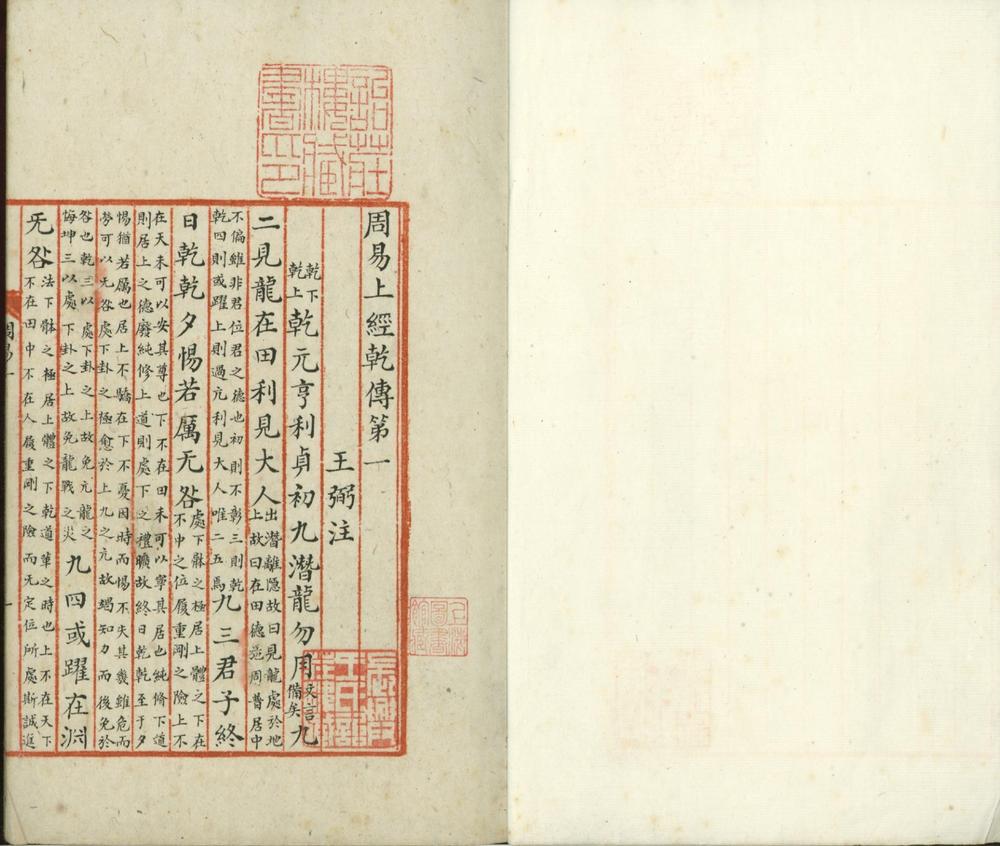 詒莊樓藏書印
周易上經乾傳第一
王弼注
乾下
乾上
乾元亨利貞初九潛龍勿用
文言
備矣
九
二見龍在田利見大人
出潛離隱故曰見龍處於地
上故曰在田德施周普居中
不偏雖非君位君之德也初則不彰三則乾
乾四則或躍上則過亢利見大人唯二五焉
九三君子終
日乾乾夕惕若厲无咎
處下骵之極居上體之下在
不中之位履重剛之險上不
在天未可以安其尊也下不在田未可以寧其居也純脩下道
則居上之德廢純修上道則處下之禮曠故終日乾乾至于夕
惕猶若厲也居上不驕在下不憂因時而惕不失其幾雖危而
勞可以无咎處下卦之極愈於上九之亢故竭知力而後免於
咎也乾三以處下卦之上故免亢龍之
悔坤三以處下卦之上故免龍戰之災
九四或躍在淵
无咎
法下骵之極居上體之下乾道革之時也上不在天下
不在田中不在人履重剛之險而无定位所處斯誠進
周易一